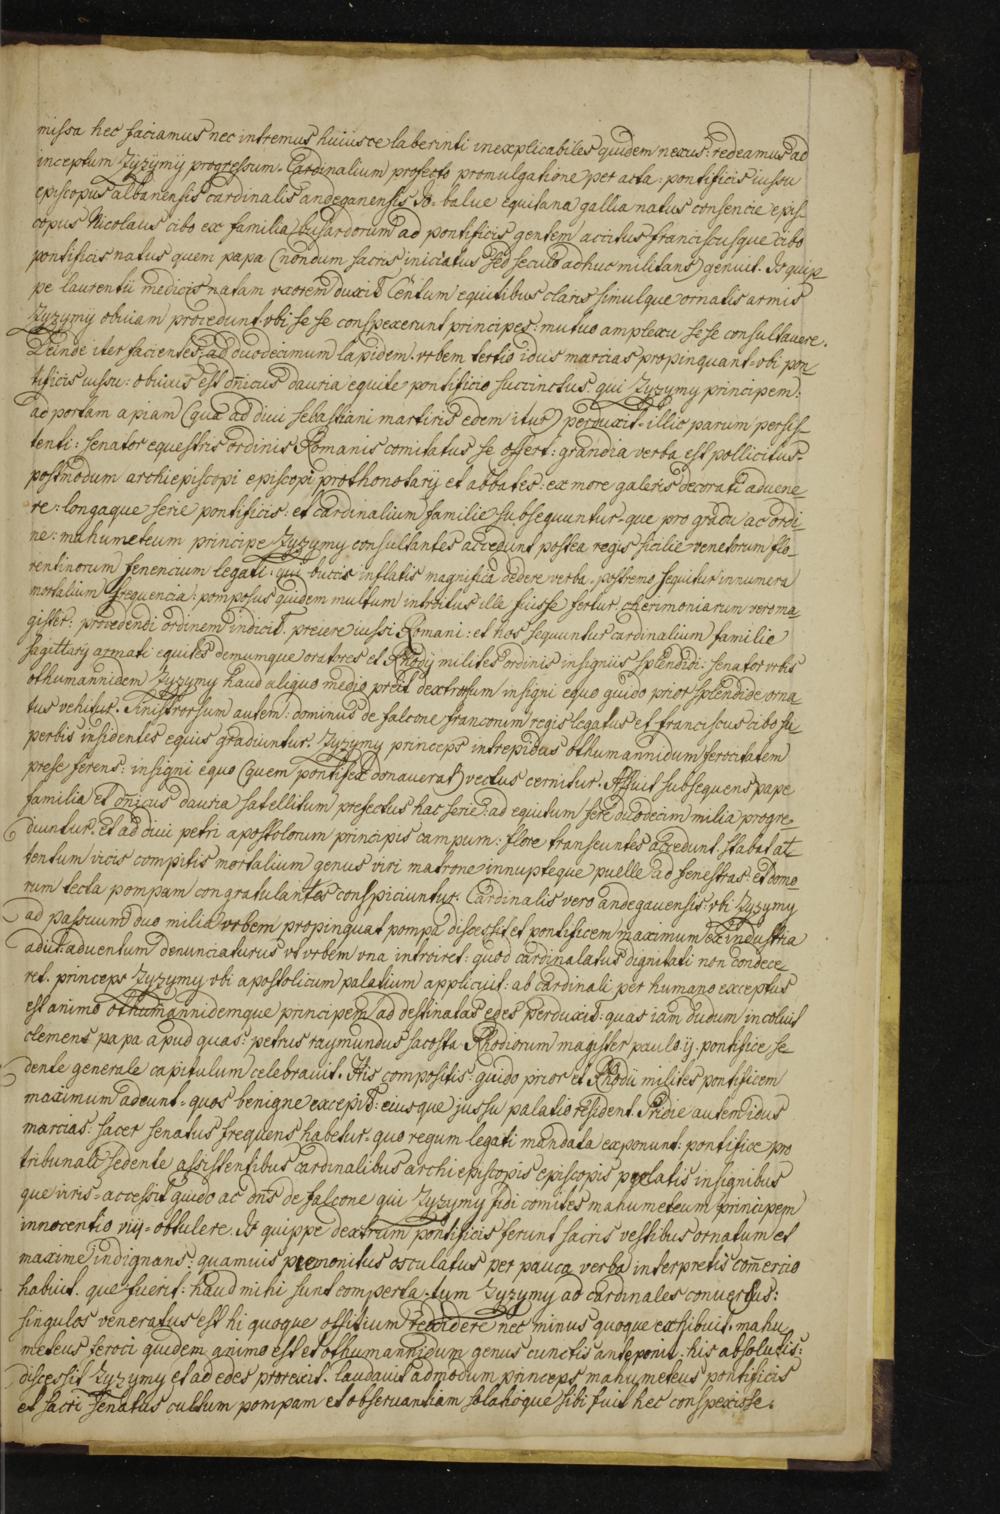 missa hec faciamus nec intremus huiusce laberinti inexplicabiles quidem nexus: redeamus ad
inceptum Zyzymy progressum. Cardinalium profecto promulgatione per acta: pontificis iussu
episcopus albanensis cardinalis andeganensis Jo. balue equitana gallia natus consencie epis-
copus Nicolaus cibo ex familia busardorum ad pontificis gentem accitus franciscusque cibo
pontificis natus quem papa (nondum sacris iniciatus sed seculo adhuc militans) genuit. Is quip-
pe laurentii medicis natam vxorem duxit Centum equitibus claris simulque ornatis armis
Zyzymy obuiam procedunt. vbi se se conspexerunt principes: mutuo amplexu se se consultauere.
Deinde iter facientes, ad duodecimum lapidem. vrbem tertio idus marcias propinquant. vbi pon-
tificis iussu: obuius est dn̄icus dauria equite pontificio succinctus. qui Zyzymy principem:
ad portam apiam (qua ad diui sebastiani martiris edem itur) perduxit. illic parum persis-
tenti: senator equestris ordinis Romanis comitatus se offert: grandia verba est pollicitus.
postmodum archiepiscopi episcopi prothonotarij et abbates: ex more galeris decorati aduene-
re: longaque serie pontificis: et cardinalium familie subsequuntur. que pro gradu ac ordi-
ne: mahumeteum principe Zyzymy consultantes accedunt postea regis sicilie venetorum flo-
rentinorum senencium legati: qui buccis inflatis magnifica dedere verba. postremo sequitur innumera
mortalium frequencia: pomposus quidem multum introitus ille fuisse fertur. cherimoniarum vero ma-
gister: procedendi ordinem indicit. preiere iussi Romani: et hos sequuntur cardinalium familie
sagittarij armati equites demumque oratores et Rhodij milites ordinis insigniis splendidi: senator vrbis
othumannidem Zyzymy haud aliquo medio predit dextrorsum insigni equo guido prior splendide orna-
tus vehitur. Sinistrorsum autem: dominus de falcone francorum regis legatus et franciscus cibo su-
perbis insidentes equis gradiuntur. Zyzymy princeps intrepidus othumannidum ferocitatem
prese ferens: insigni equo (quem pontifex donauerat) vectus cernitur. Affuit subsequens pape
familia et dn̄icus dauria satellitum prefectus hac serie: ad equitum fere duodecim milia progre-
diuntur. et ad diui petri apostolorum principis campum: flore transeuntes accedunt. stabat at-
tentum vicis compitis mortalium genus viri matrone innupteque puelle ad fenestras: et domo-
rum tecta pompam congratulantes conspiciuntur. Cardinalis vero andegauensis: vbi Zyzymy
ad passuum duo milia vrbem propinquat pompa discessit et pontificem maximum ex industria
adiit: aduentum denunciaturus vt vrbem vna introiret: quod cardinalatus dignitati non condece-
ret. princeps Zyzymy vbi apostolicum palatium applicuit: ab cardinali per humano exceptus
est animo othumannidemque principem ad destinatas edes perduxit: quas iam dudum incoluit
clemens papa apud quas: petrus raymundus sacosta Rhodiorum magister paulo ij. pontifice se-
dente generale capitulum celebrauit. His compositis: guido prior et Rhodii milites pontificem
maximum adeunt. quos benigne excepit: eiusque jussu palatio resident. Pridie autem idus
marcias: sacer senatus frequens habetur. quo regum legati mandata exponunt: pontifice pro
tribunali sedente assistentibus cardinalibus archiepiscopis episcopis prelatis insignibus
que viris. accessit guido ac dn̄s de falcone qui Zyzymy fidi comites mahumeteum principem
innocentio viij. obtulere. Is quippe dextrum pontificis ferunt sacris vestibus ornatum et
maxime indignans: quamuis premonitus osculatus per pauca verba interpretis com̄ercio
habuit. que fuerit: haud mihi sunt comperta. tum Zyzymy ad cardinales conuersus:
singulos veneratus est hi quoque offitium reddidere nec minus quoque exhibuit. mahu-
meteus feroci quidem animo est et othumannidum genus cunctis anteponit. his absolutis:
discessit Zyzymy et ad edes prorexit. laudauit admodum princeps mahumeteus pontificis
et sacri senatus cultum pompam et obseruantiam solatioque sibi fuit hec conspexisse.